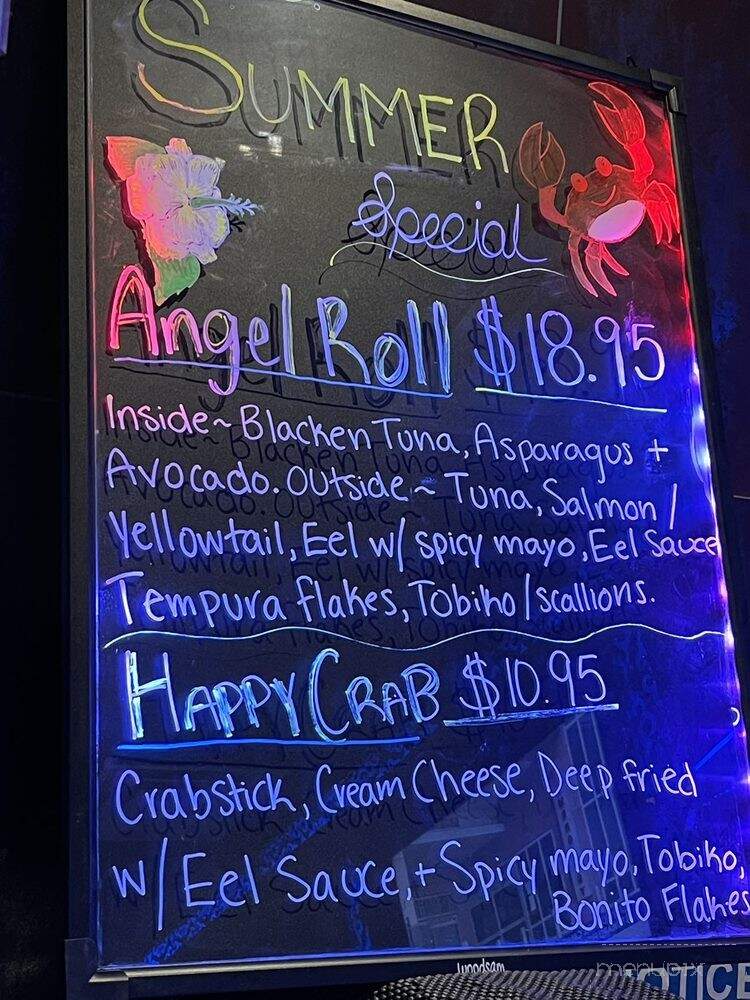 SUMMER
Special
Angel Roll $18.95
Inside~ Blacken Tuna, Asparagus +
Avocado. Outside~ Tuna, Salmon/
Yellowtail, Eel w/ spicy mayo, Eel Sauce
Tempura flakes, Tobiko/scallions.
HAPPY CRAB $10.95
Crabstick, Cream Cheese, Deep fried
w/ Eel Sauce, + Spicy mayo, Tobiko,
Bonito Flakes
woodsam
menupix
OTICE